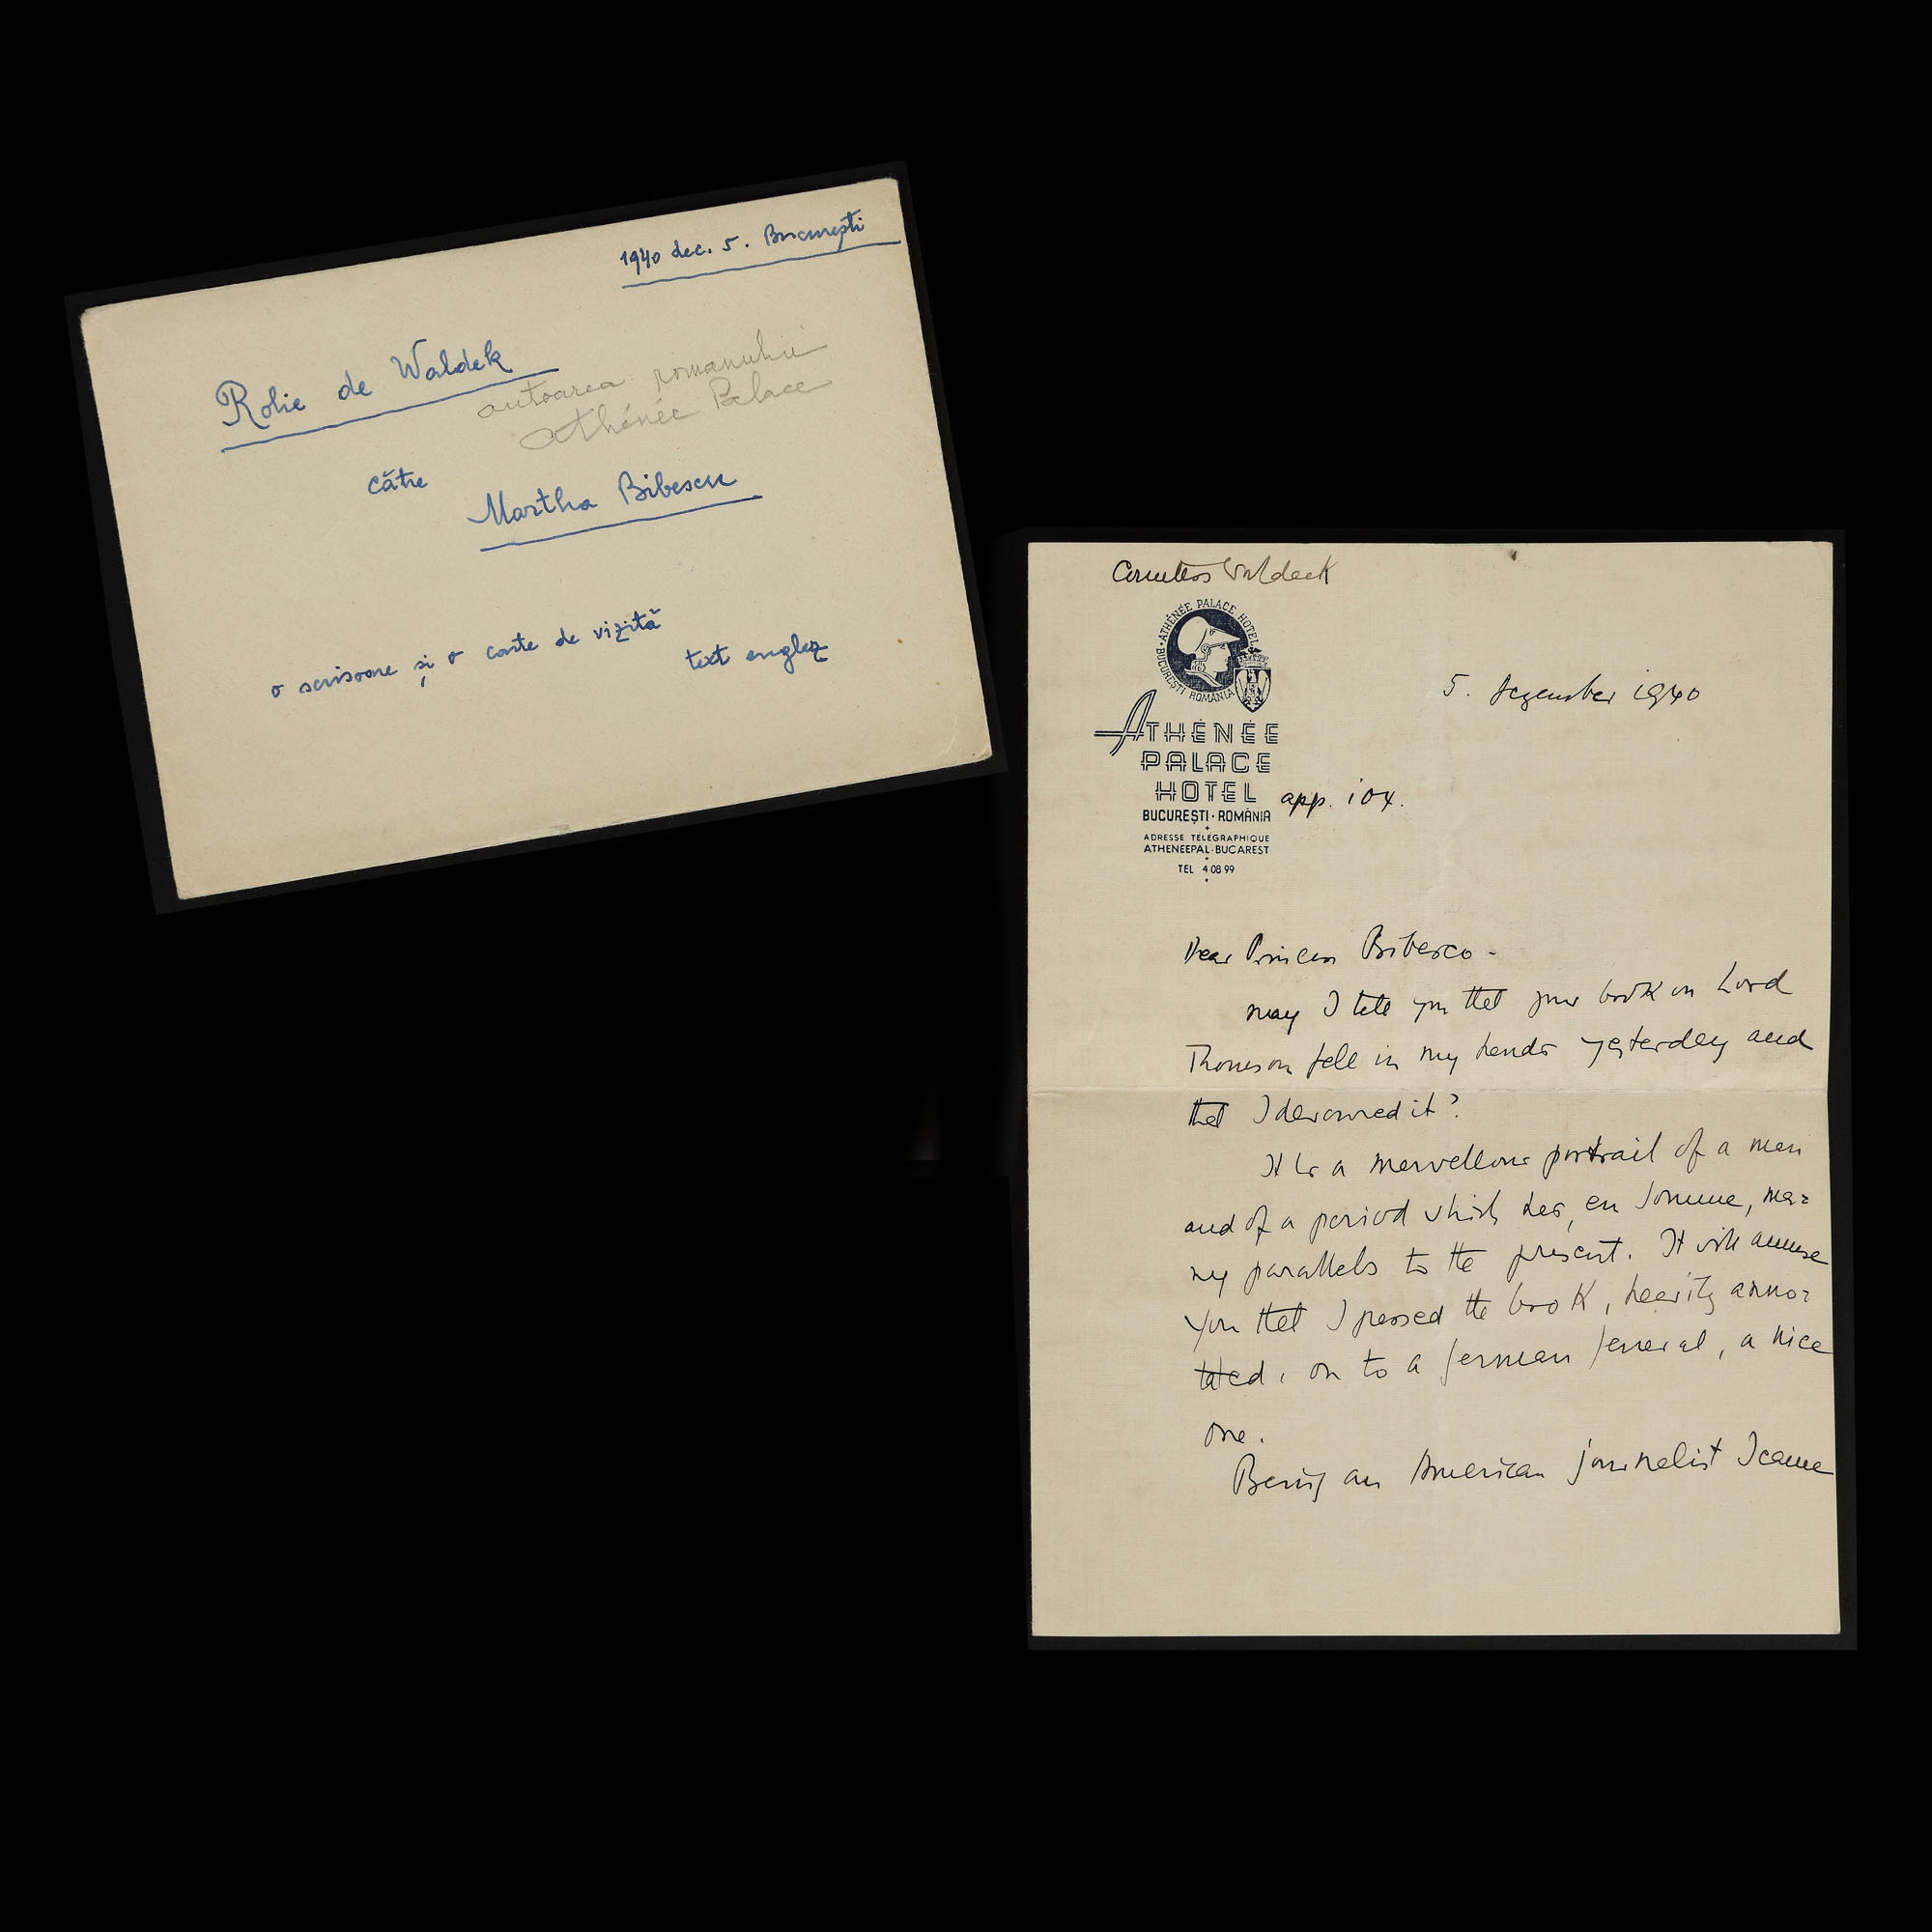 1940 dec. 5. București
Rolie de Waldek
autoarea romanului
Athénée Palace
către
Martha Bibescu
o scrisoare și o carte de vizită
text englez
Countess Waldeck
ATHÉNÉE PALACE HOTEL
BUCUREȘTI ROMÂNIA
5. Dezember 1940
ATHÉNÉE
PALACE
HOTEL app. 104.
BUCUREȘTI · ROMÂNIA
ADRESSE TÉLÉGRAPHIQUE
ATHENEEPAL - BUCAREST
TEL 4 08 99
Dear Princess Bibesco -
may I tell you that your book on Lord
Thomson fell in my hands yesterday and
that I devoured it?
It is a marvellous portrait of a man
and of a period which has, en somme, ma=
ny parallels to the present. It will amuse
you that I passed the book, heavily anno=
tated, on to a german general, a nice
one.
Being an American journalist I came